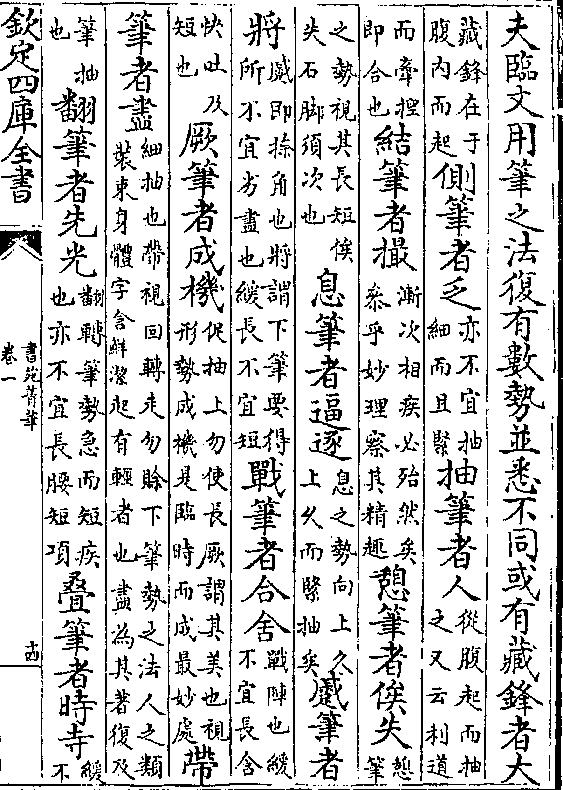 夫臨文用筆之法復有數勢並悉不同或有藏鋒者大
藏鋒在于腹内而起側筆者乏亦不宜抽細而且緊抽筆者人從腹起而抽之又云利道
而牽揑即合也結筆者撮漸次相疾必殆然矣叅乎妙理察其精趣憩筆者俟失憩筆
之勢視其長短俟失右脚須次也息筆者逼逐息之勢向上久上久而緊抽矣蹙筆者
將蹙即捺角也將謂下筆要得所不宜劣盡也緩長不宜短戰筆者合舍戰陣也緩不宜長舍
快吐及短也厥筆者成機促抽上勿使長厥謂其美也視形勢成機是臨時而成最妙處帶
筆者盡細抽也帶視回轉走勿賒下筆勢之法人之類裝束身體字含鮮潔起有輕者也盡為其著復及
筆抽也翻筆者先光翻轉筆勢急而短疾也亦不宜長腰短項疊筆者時寺緩不
欽定四庫全書
書苑菁華
卷一
十四